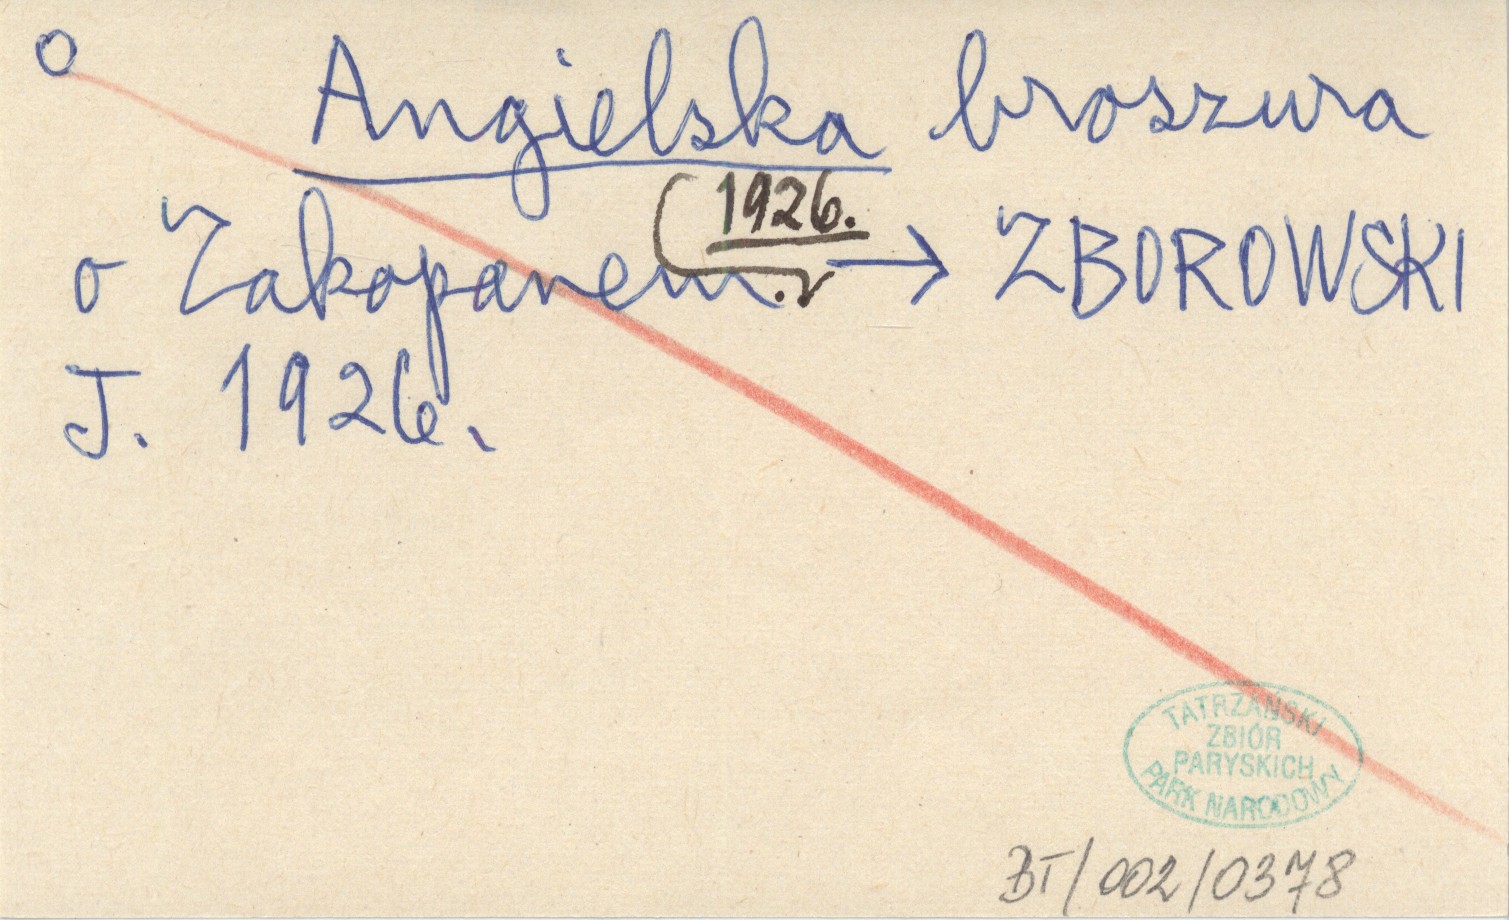 o Angielska broszura
1926.
o Zakopanem. → ZBOROWSKI
J. 1926.
TATRZAŃSKI
ZBIÓR
PARYSKICH
PARK NARODOWY
BT/002/0378